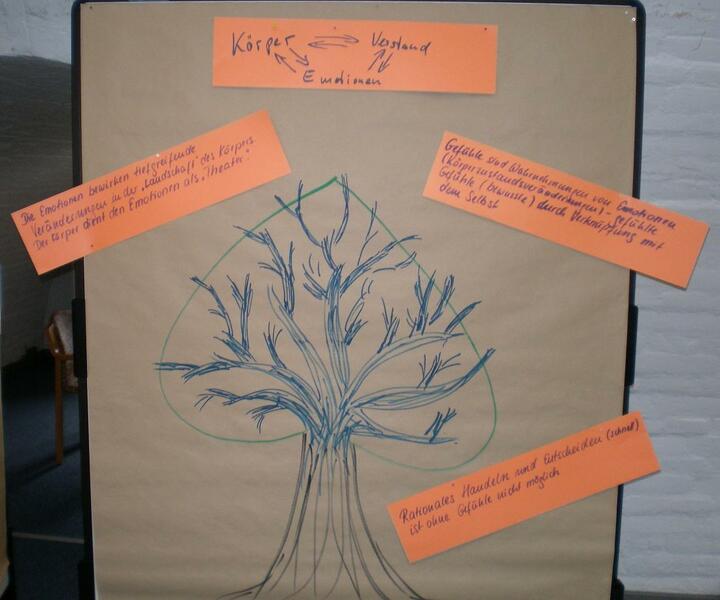 Körper Verstand
Emotionen
Die Emotionen bewirken tiefgreifende
Veränderungen in der „Landschaft" des Körpers.
Der Körper dient den Emotionen als „Theater".
Gefühle sind Wahrnehmungen von Emotionen
(Körperzustandsveränderungen) - gefühlte
Gefühle (bewusste) durch Verknüpfung mit
dem Selbst
Rationales Handeln und Entscheiden (schnell)
ist ohne Gefühle nicht möglich